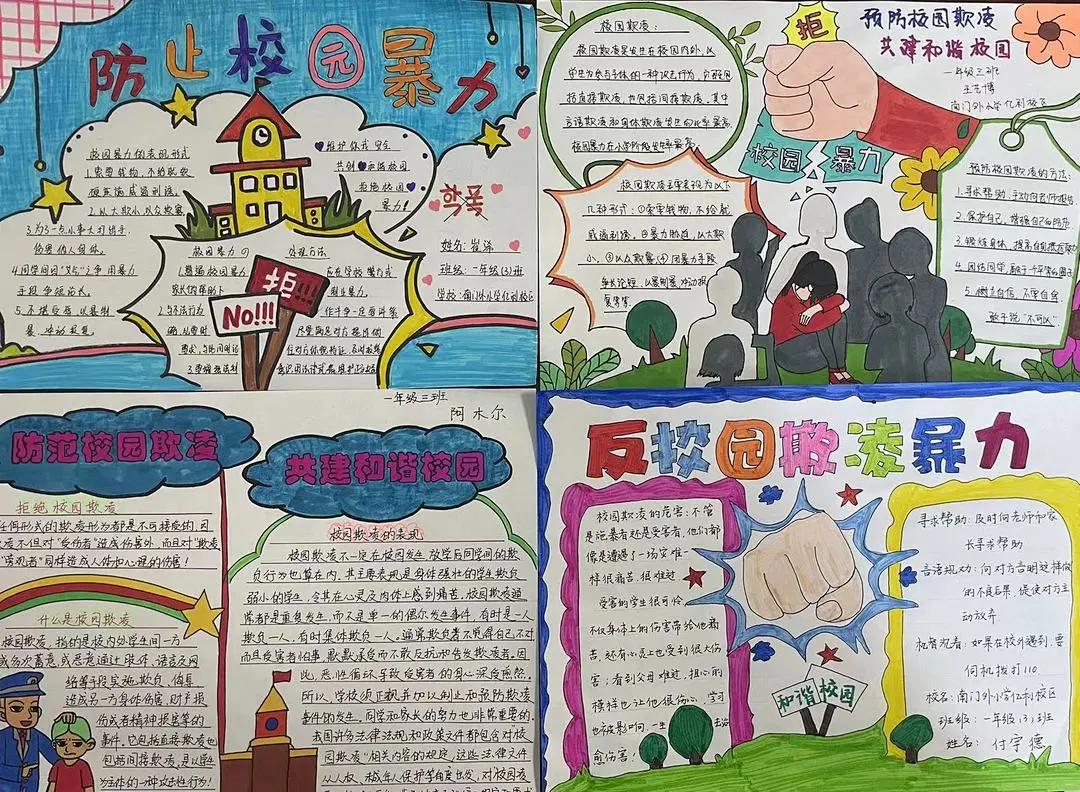 防止校园暴力
校园暴力的表现形式
1.索要钱物,不给就
硬来造成威利诱。
2.以大欺小以众欺寡
3.为了一点小事大打出手,
伤害他人身体。
4.同学间因"义气"之争用暴力
手段争短论长。
5.不堪受辱,以暴制
暴,冲动报复。
维护你我安全
共创和谐校园
拒绝校园
暴力!
校园暴力的
处理方法
拒!!!
No!!!
姓名:崔泽
班级:一年级(3)班
学校:南门外小学亿利校区
拒
预防校园欺凌
共建和谐校园
一年级三班
王艺博
南门外小学亿利校区
校园欺凌:
校园欺凌是发生在校园内外,以
学生为参与主体的一种攻击行为,它既包
括直接欺凌,也包括间接欺凌。其中
言语欺凌和身体欺凌发生的比率最高,
校园暴力在小学阶段发生率最高。
校园暴力
校园欺凌主要表现为以下
几种形式:①索要钱物,不给就
威逼利诱,②暴力胁迫,以大欺
小,③以众欺寡④因暴力手段
争长论短,以暴制暴,冲动报
复等等
预防校园欺凌的方法:
1.寻求帮助,主动向老师报告,
2.保护自己,增强自己的防范
3.锻炼身体,提高自我抵抗能力
4.团结同学,融于一个平常的圈子
5.树立自信,不要自卑
敢于说"不可以"
一年级三班
阿木尔
防范校园欺凌
共建和谐校园
拒绝校园欺凌
任何形式的欺凌形为都是不可接受的,因
欺凌不但对"受伤者"造成伤害外,而且对"欺凌
"旁观者"同样造成人体和心理的伤害!
什么是校园欺凌
校园欺凌,指的是校内外学生间一方
或多次蓄意或恶意通过肢体、语言及网
络等手段实施欺负、侮辱
造成另一方身体伤害、财产损
伤或者精神损害等的
事件。它包括直接欺凌也
包括间接欺凌,是以学生
为主体的一种攻击性行为!
校园欺凌的表现
校园欺凌不一定在校园发生,放学后同学间的欺
负行为也算在内,其主要表现是身体强壮的学生欺负
弱小的学生,令其在心灵及肉体上感到痛苦,校园欺凌通
常都是重复发生,而不是单一的偶尔发生事件,有时是一人
欺负一人,有时集体欺负一人。通常欺负者不觉得自己不对
而且受害者怕事,默默承受而不敢反抗和告发欺凌者,因
此,恶性循环导致受害者的身心深受煎熬。
所以,学校须正视并加以制止和预防欺凌
事件的发生。同学和家长的努力也非常重要的。
我国许多法律法规和政策文件都包含对校
园欺凌"相关内容的规定,这些法律文件
从人权、未成年人保护等角度出发,对"校园凌
反校园欺凌暴力
校园欺凌的危害:不管
是施暴者还是受害者,他们都
像是遭遇了一场灾难一
样很痛苦,很难过
受害的学生很可怜
不仅身体上的伤害带给他痛
苦,还有心灵上也受到很大伤
害;看到父母难过,担心的
模样也让他很伤心,学习
愈伤害!
和谐校园
寻求帮助:及时向老师和家
长寻求帮助
言语规劝:向对方言明这样做
的不良后果,促使对方主
动放弃
机智沉着:如果在校外遇到,要
伺机拨打110.
校名:南门外小学亿利校区
班级:一年级(3)班
姓名:付宇德